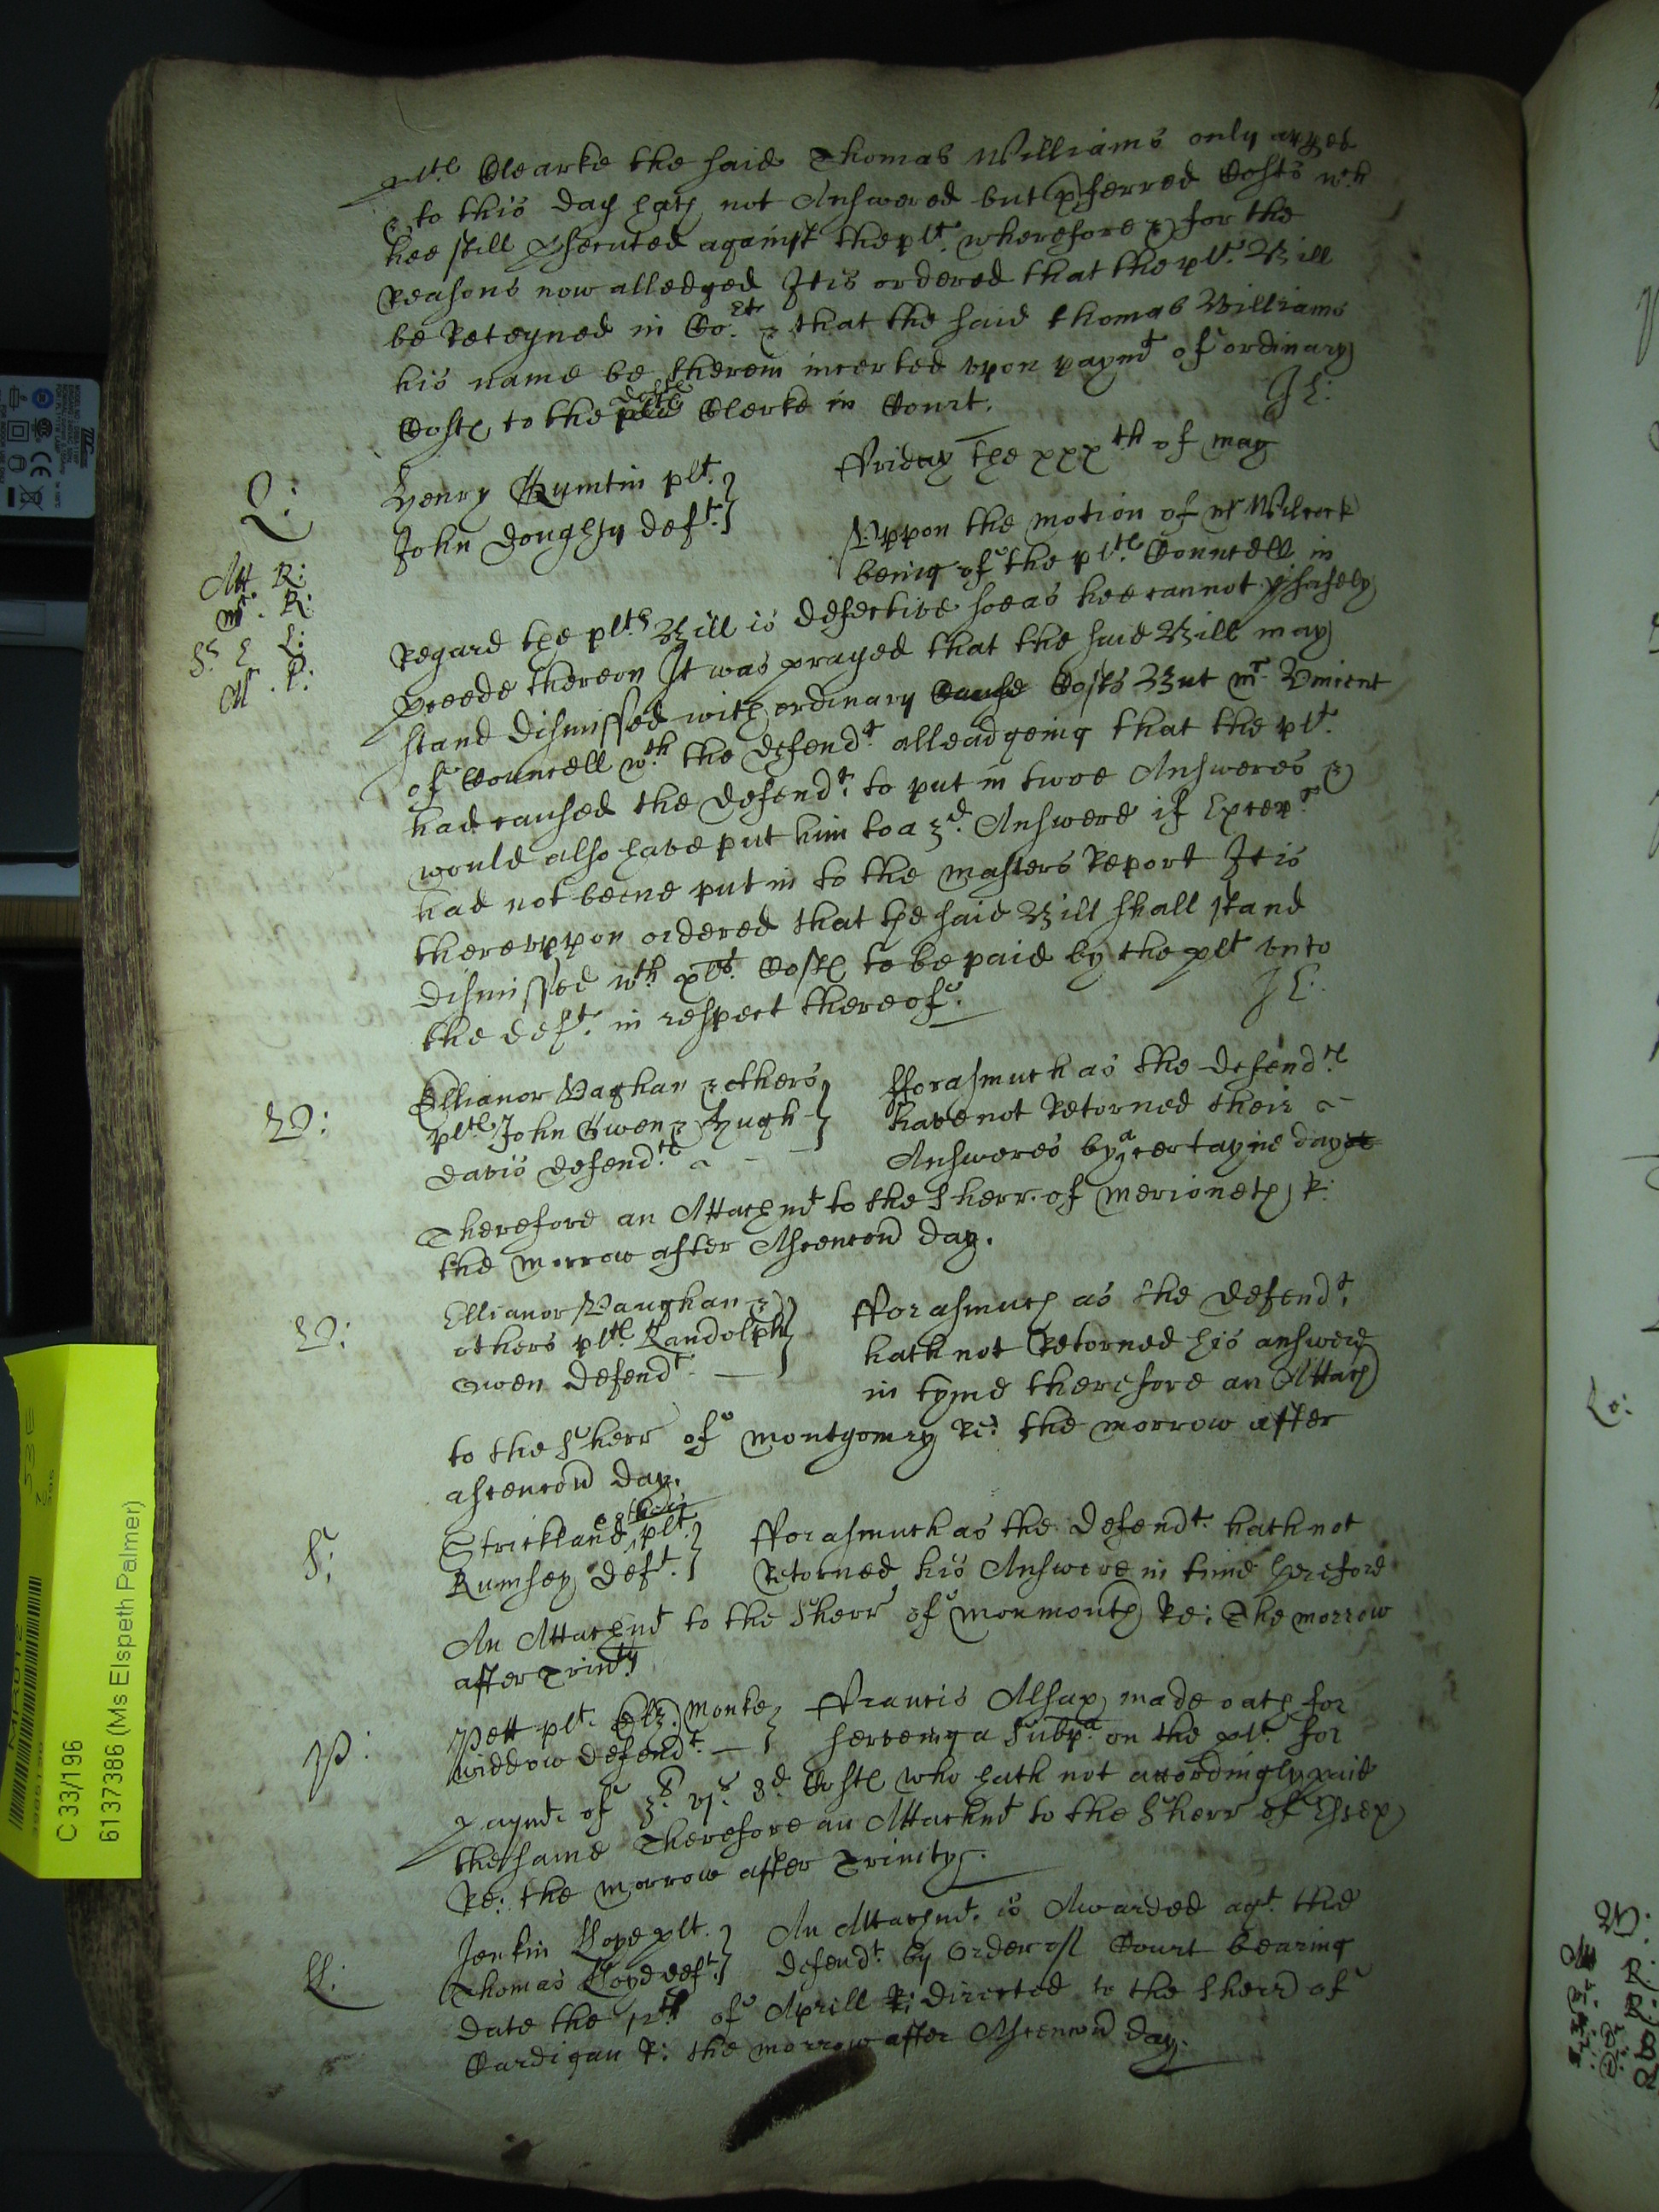 pltes Clearke the said Thomas Williams only
to this day hath not Answered but pferred Costs wch
hee still psecuted against the plt. wherefore & for the
Reasons now alledged It is ordered that the plts Bill
be Reteyned in Cort & that the said Thomas Williams
his name be therein incerted upon paymt of ordinary
Costes to the defts Clerke in Court.
Friday the xxxth of may
Q:
Henry Quintin plt.
John Doughty deft.
Uppon the motion of mr Wilcock
being of the pltes Councell in
Regard the plts Bill is defective soe as hee cannot safely
pceede thereon It was prayed that the said Bill may
stand dismissed with ordinary Cause Costs But mr Vincent
of Councell wth the defendt. alleadgeing that the plt.
had caused the defendt. to put in twoe Answeres &
would also have put him to a 3d. Answere if Excepr
had not beene put in to the masters Report It is
thereuppon ordered that the said Bill shall stand
dismissed wth Costes to be paid by the plt unto
the deft. in respect thereof.
V:
Ellianor Vaghan & others
pltes John Gwen & Hugh
Davis defendtes
fforasmuch as the defendtes
have not Retorned their
Answeres by a certayne day
Therefore an Attachmt to the Sherr. of Merioneth R:
the morrow after Ascencon day.
V:
Ellianor Vaughan &
others pltes Randolph
Owen defendt.
fforasmuch as the defendt.
hath not Retorned his answere
in tyme therefore an Attach
to the Sherr of Montgomry Re: the morrow after
ascencon day.
S:
Strickland & others plt.
Rumsey deft.
fforasmuch as the defendt. hath not
Retorned his Answere in time therefore
An Attachmt to the Sherr of Monmouth Re: The morrow
after Trinity
P:
Pett plt. Eliz. Monke
widdow defendt.
Francis Alsap made oath for
serveing a Subpa on the plt. for
paymt of 3l. vjs. 8d. Costes who hath not accordingly paid
the same Therefore an Attachmt to the Sherr of Essex
Re: the morrow after Trinity.
Ll:
Jenkin Lloyd plt.
Thomas Lloyd deft.
An Attachmt. is Awarded agt. the
defendt. by order of Court bearing
date the 12th of Aprill R: directed to the Sherr of
Cardigan R: the morrow after Ascencon day.
C 33/196
6137386 (Ms Elspeth Palmer)